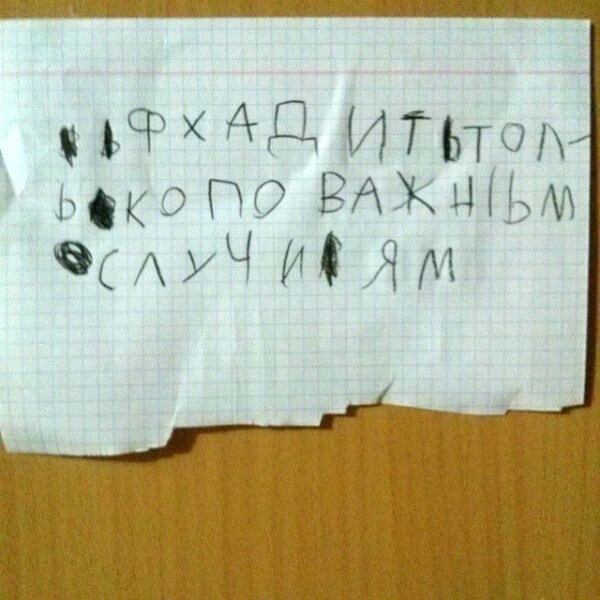 ФХАДИТЬ ТОЛ-
ЬКО ПО ВАЖНЫМ
СЛУЧИЯМ